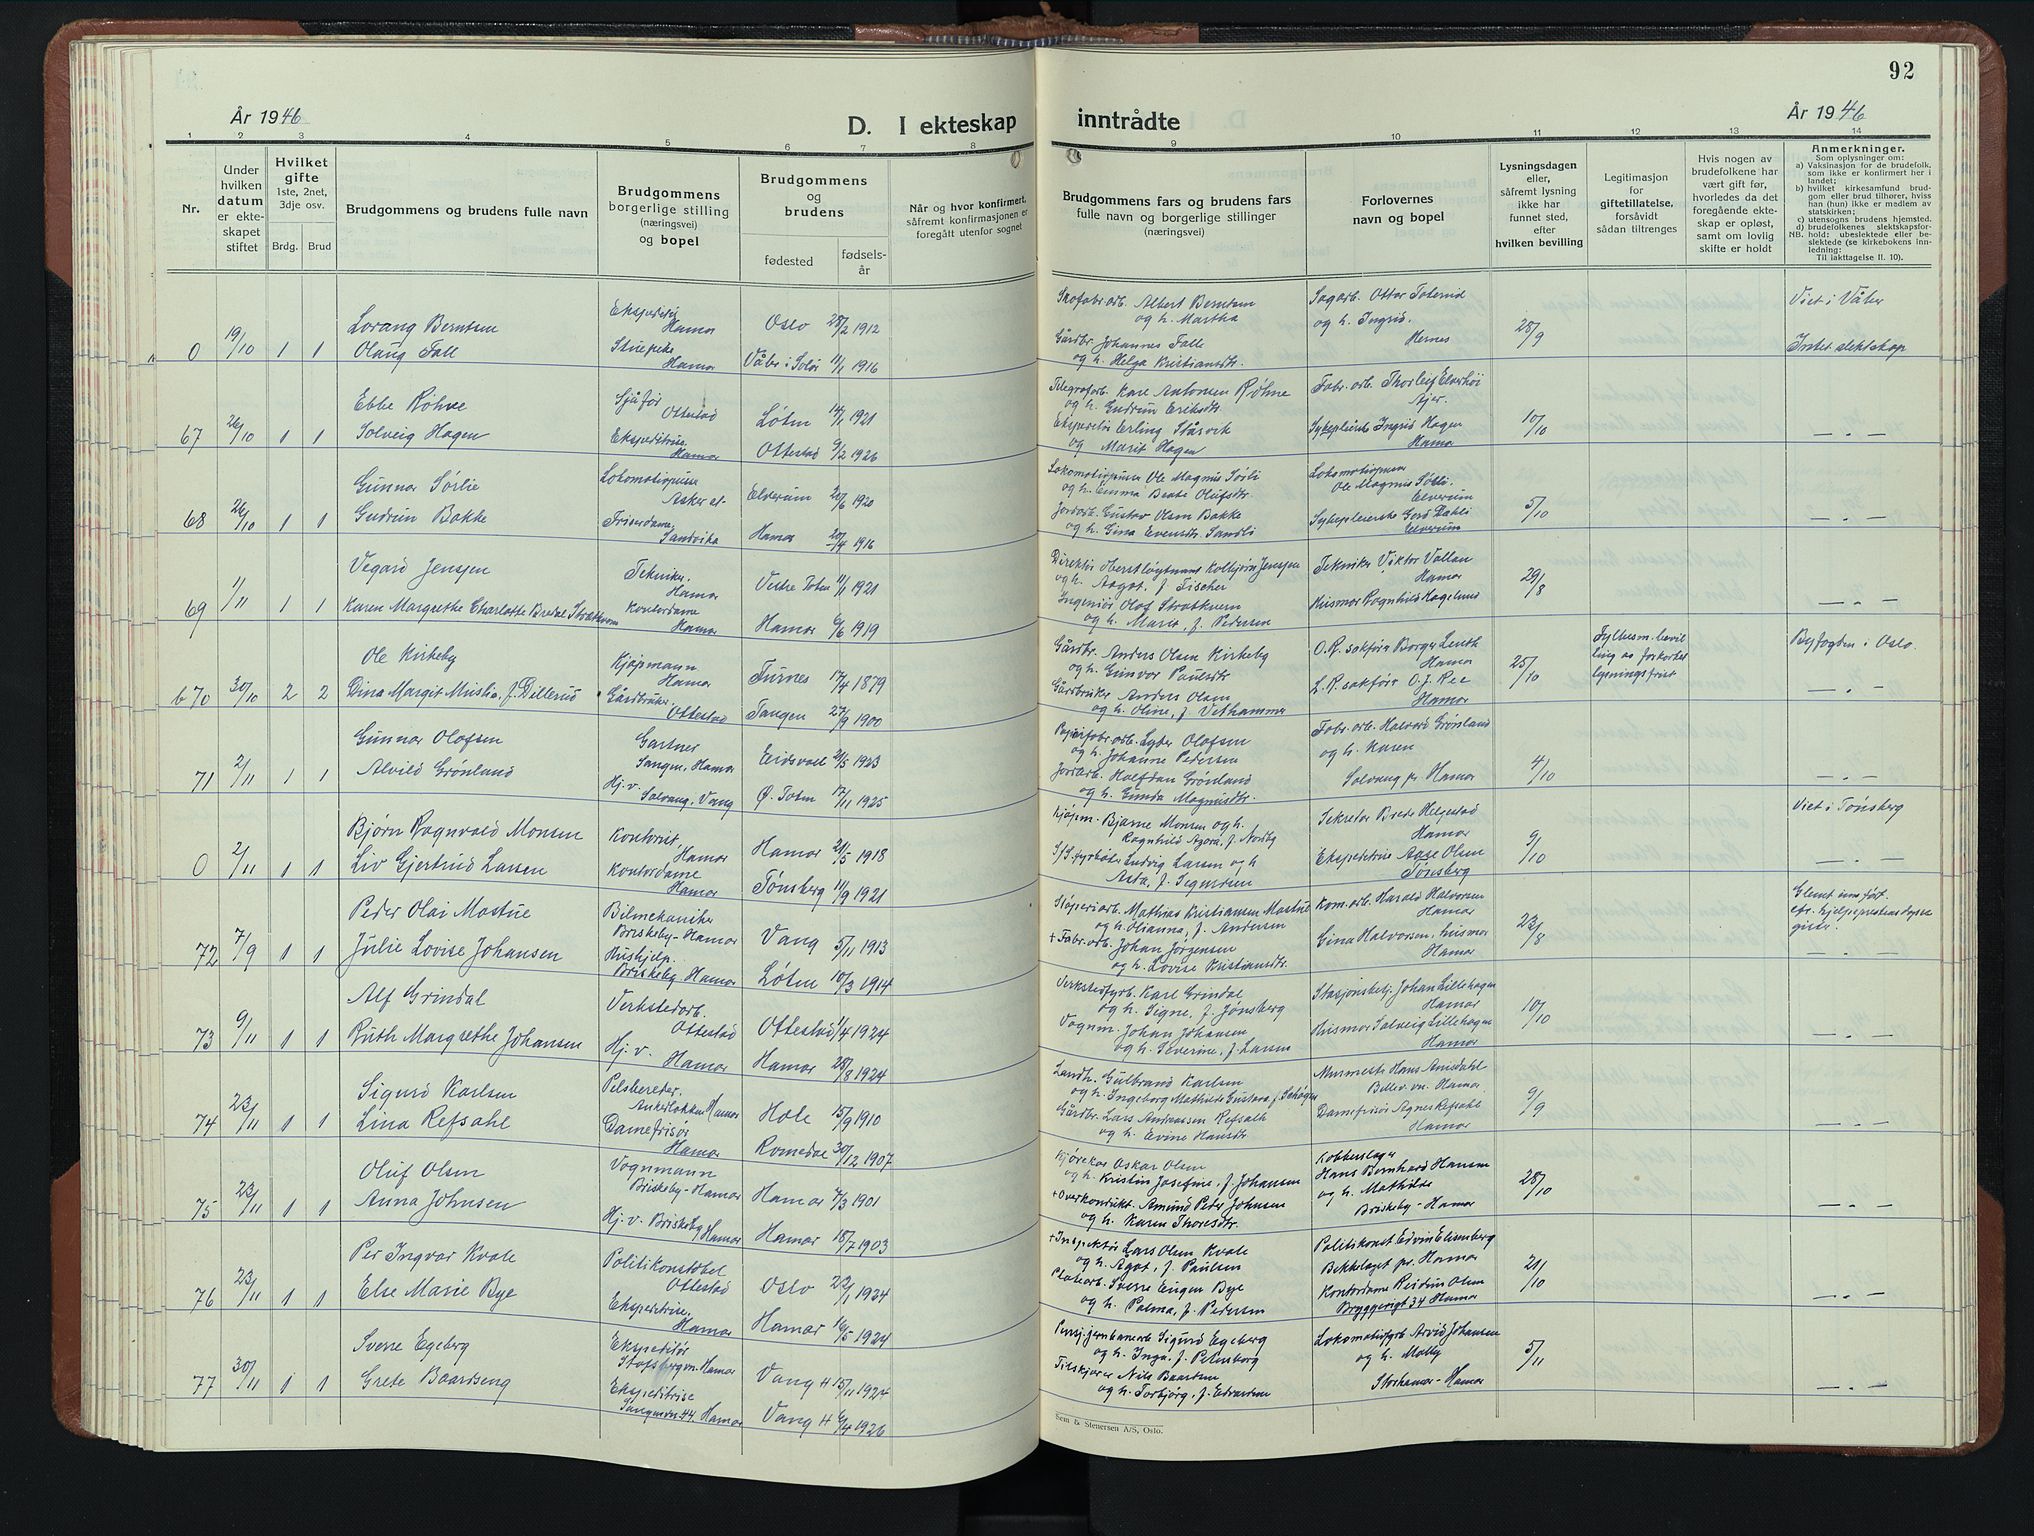 92
År 1946
D. I ekteskap inntrådte
År 1946
1 2 3 4 5 6 7 8 9 10 11 12 13 14
Nr.
Under hvilken datum er ekteskapet stiftet
Hvilket gifte
1ste, 2net, 3dje osv.
Brdg. Brud
Brudgommens og brudens fulle navn
Brudgommens borgerlige stilling (næringsvei) og bopel
Brudgommens og brudens
fødested
fødselsår
Når og hvor konfirmert, såfremt konfirmasjonen er foregått utenfor sognet
Brudgommens fars og brudens fars fulle navn og borgerlige stillinger (næringsvei)
Forlovernes navn og bopel
Lysningsdagen eller, såfremt lysning ikke har funnet sted, efter hvilken bevilling
Legitimasjon for giftetillatelse, forsåvidt sådan tiltrenges
Hvis nogen av brudefolkene har vært gift før, hvorledes da det foregående ekteskap er opløst, samt om lovlig skifte er holdt
Anmerkninger.
Som oplysninger om:
a) Vaksinasjon for de brudefolk, som ikke er konfirmert her i landet;
b) hvilket kirkesamfund brudgom eller brud tilhører, hvis han (hun) ikke er medlem av statskirken;
c) utensogns brudens hjemsted.
d) brudefolkenes slektskapsforhold: ubeslektede eller beslektede (se kirkebokens innledning:
NB. Til iakttagelse II. 10).
0 19/10 1 1
Lorang Berntsen
Olaug Falle
Ekspeditør Hamar
Stuepike Hamar
Oslo 28/2 1912
Våler i Solør 11/1 1916
Skofabr.arb. Albert Berntsen
og h. Martha
Gårdbr. Johannes Falle
og h. Helga Kristiansdtr.
Sagarb. Ottar Toterud
og h. Ingrid.
Hernes
28/9
Viet i Våler
Intet slektskap
67 26/10 1 1
Ebbe Røhne
Solveig Hagen
Sjåfør Ottestad
Ekspeditrise Hamar
Løten 14/1 1921
Ottestad 9/2 1926
Telegrafarb. Kare Antonsen Røhne
og h. Gudrun Eriksdtr.
Ekspeditør Erling Ståsvek
og Marit Hagen
Fabr.arb. Thorleif Elverhøi
Ajer.
Sykepleierske Ingrid Hagen
Hamar
10/10
— „ —
68 26/10 1 1
Gunnar Sørlie
Gudrun Bakke
Lokomotivpusser
Asker st.
Friserdame
Sandvika
Elverum 20/6 1920
Hamar 20/4 1916
Lokomotivpusser Ole Magnus Sørli
og h. Emma Beate Olufsdtr.
Jordarb. Gustav Olsen Bakke
og h. Gina Evensdtr. Sandli
Lokomotivpusser
Ole Magnus Sørli
Elverum
Sykepleierske Gerd Dæhli
Elverum
5/10
— „ —
69 1/11 1 1
Vegard Jensen
Karen Margrethe Charlotte Bredal Stratkvern
Tekniker, Hamar
Kontordame Hamar
Vestre Toten 11/1 1921
Hamar 6/6 1919
Direktør Oberstløytnant Kolbjørn Jensen
og h. Aagot, f. Fischer
Ingeniør Olaf Stratkvern
og h. Marit, f. Pedersen
Tekniker Viktor Vallan
Hamar
Husmor Ragnhild Hagelund
29/8
— „ —
670 30/10 2 2
Ole Kirkeby
Dina Margit Mishø, f. Dillerud
Kjøpmann Hamar
Gårdbruker Ottestad
Furnes 17/4 1879
Tangen 27/9 1900
Gårdbr. Anders Olsen Kirkeby
og h. Gunvor Paulsdtr
Gårdbruker Anders Olsen
og h. Oline, f. Vethammer
O.R. sakfører Borger Lenth
Hamar
L.R. sakfører O.J. Ree
Hamar
25/10
Fylkesm. bevilling av forkortet lysningsfrist
Byfogden i Oslo.
— „ —
71 2/11 1 1
Gunnar Olafsen
Alvild Grønland
Gartner
Sangen, Hamar
Hj. v.
Solvang, Vang
Eidsvoll 21/5 1923
Ø. Toten 17/11 1925
Papirfabr.arb. Lyder Olafsen
og h. Johanne Pedersen
Jordarb. Halfdan Grønland
og h. Gunda Magnusdtr.
Fabr.arb. Halvard Grønland
og h. Karen
Solvang pr Hamar
4/10
— „ —
0 2/11 1 1
Bjørn Ragnvald Monsen
Liv Gjertrud Larsen
Kontorist, Hamar
Kontordame Hamar
Hamar 21/5 1918
Tønsberg 11/9 1921
Kjøpm. Bjarne Monsen og h.
Ragnhild Agora, f. Nordby
S/S fyrbøter Ludvig Larsen og h
Asta, f. Sigurdsen
Sekretær Breder Helgestad
Hamar
Ekspeditrise Aase Olsen
Tønsberg
9/10
Viet i Tønsberg
— „ —
72 7/9 1 1
Peder Olai Mostue
Julie Lovise Johansen
Bilmekaniker
Briskeby-Hamar
Hushjelp.
Briskeby Hamar
Vang 5/11 1913
Løten 10/3 1914
Støperiarb. Mathias Kristiansen Mostue
og h. Olianna, f. Andersen
+ Fabr.arb. Johan Jørgensen
og h. Lovise Kristiansdtr.
Kom.arb. Harald Halvorsen
Hamar
Gina Halvorsen, husmor
Hamar
23/8
Glemt innført.
— „ —
73 9/11 1 1
Alf Grindal
Ruth Margrethe Johansen
Verkstedarb. Ottestad
Hj. v. Hamar
Ottestad 1/4 1924
Hamar 28/8 1924
Verkstedfyrb. Karl Grindal
og h. Signe, f. Jønsberg
Vognm. Johan Johansen
og h. Severine, f. Larsen
Stasjonsbetj. Johan Lillehagen
Hamar
Husmor Solveig Lillehagen
Hamar
10/10
— „ —
74 23/11 1 1
Sigurd Karlsen
Lina Refsahl
Pelsbereder.
Ankerløkken Hamar
Damefrisør
Hamar
Hole 15/9 1910
Romedal 30/12 1907
Landh. Gulbrand Karlsen
og h. Ingeborg Mathilde Gustava, f. Schøgen
Gårdbr. Lars Andreassen Refsahl
og h. Evine Hansdtr
Murmester Hans Amsdahl
Hamar
Damefrisør Agnes Refsahl
Hamar
9/9
— „ —
75 23/11 1 1
Oluf Olsen
Anna Johnsen
Vognmann
Briskeby-Hamar
Hj. v. Briskeby Hamar
Hamar 7/3 1901
Hamar 18/7 1903
Kjørekar Oskar Olsen
og h. Kristin Josefine, f. Johansen
+ Overkondukt. Amund Peter Johnsen
og h. Karen Thoresdtr.
Kobberslager
Hans Bernhard Hansen
og h. Mathilde
Briskeby-Hamar
28/10
— „ —
76 23/11 1 1
Per Ingvar Kvale
Else Marie Bye
Politikonstabel
Ottestad
Ekspeditrise.
Hamar
Oslo 23/1 1924
Hamar 16/5 1924
+ Inspektør Lars Olsen Kvale
og h. Agot, f. Paulsen
Platearb. Sverre Eugen Bye
og h. Palma, f. Pedersen
Politikonst Edvin Elisenberg
Bekkelaget pr. Hamar
Kontordame Reidun Olsen
Bryggerigt 34 Hamar
21/10
— „ —
77 30/11 1 1
Sverre Egeberg
Grete Baardseng
Ekspeditør
Stafsbergvn. Hamar
Ekspeditrise
44 Hamar
Vang H 15/11 1924
Vang H 6/4 1926
Pensj. jernbanearb. Sigurd Egeberg
og h. Inga, f. Petersborg
Tilskjærer Nils Baardsen
og h. Torbjørg, f. Edvardsen
Lokomotivfyrb Arvid Johansen
og h. Molly
Storhamar-Hamar
5/11
— „ —
Sem & Stenersen A/S, Oslo.